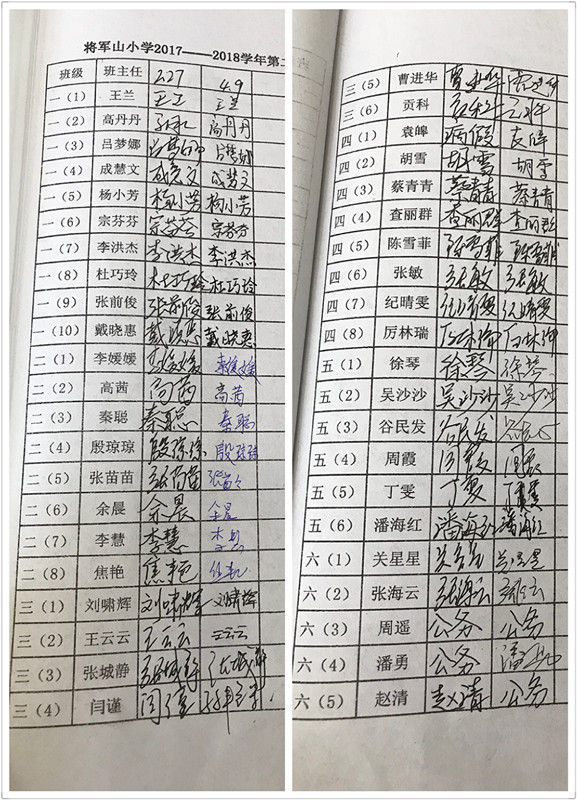 将军山小学2017——2018学年第二
班级 班主任 2.27 4.9
一（1） 王兰 王兰 王兰
一（2） 高丹丹 高丹丹
一（3） 吕梦娜 吕梦娜 吕梦娜
一（4） 成慧文 成慧文 成慧文
一（5） 杨小芳 杨小芳 杨小芳
一（6） 宗芬芬 宗芬芬
一（7） 李洪杰 李洪杰 李洪杰
一（8） 杜巧玲 杜巧玲 杜巧玲
一（9） 张前俊 张前俊 张前俊
一（10） 戴晓惠 戴晓惠 戴晓惠
二（1） 李媛媛 李媛媛 李媛媛
二（2） 高茜 高茜 高茜
二（3） 秦聪 秦聪 秦聪
二（4） 殷琼琼 殷琼琼 殷琼琼
二（5） 张苗苗 张苗苗 张苗苗
二（6） 余晨 余晨 余晨
二（7） 李慧 李慧
二（8） 焦艳 焦艳
三（1） 刘啸辉 刘啸辉 刘啸辉
三（2） 王云云 王云云 王云云
三（3） 张城静 张城静 张城静
三（4） 闫谨 闫谨
三（5） 曹进华 曹进华
三（6） 贡科 贡科
四（1） 袁皞 病假 袁皞
四（2） 胡雪 胡雪 胡雪
四（3） 蔡青青 蔡青青 蔡青青
四（4） 查丽群 查丽群 查丽群
四（5） 陈雪菲 陈雪菲 陈雪菲
四（6） 张敏 张敏 张敏
四（7） 纪晴雯 纪晴雯 纪晴雯
四（8） 厉林瑞
五（1） 徐琴 徐琴 徐琴
五（2） 吴沙沙 吴沙沙 吴沙沙
五（3） 谷民发 谷民发
五（4） 周霞 周霞 周霞
五（5） 丁雯 丁雯
五（6） 潘海红 潘海红 潘海红
六（1） 关星星 关星星 关星星
六（2） 张海云 张海云
六（3） 周遥 公务 公务
六（4） 潘勇 公务 潘勇
六（5） 赵清 赵清 公务